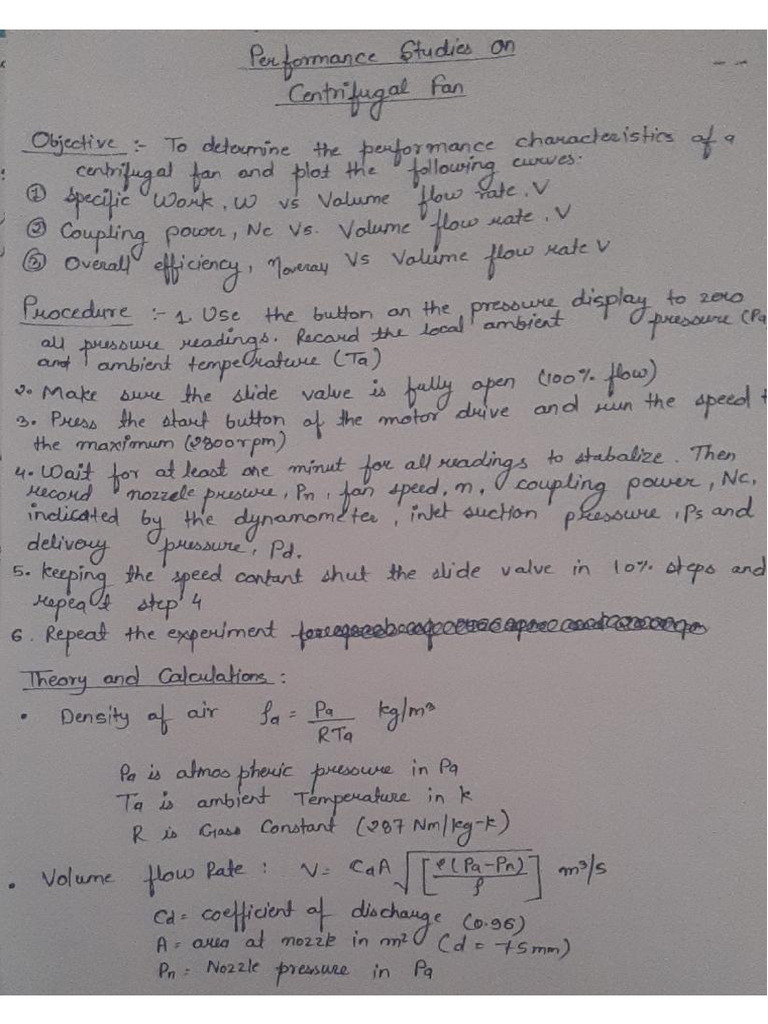 Performance Studies on
Centrifugal Fan
Objective :- To determine the performance characteristics of a
centrifugal fan and plot the following curves:
① Specific Work, W vs Volume flow rate, V
② Coupling power, Nc Vs. Volume flow rate, V
③ Overall efficiency, ηoverall Vs Volume flow rate V
Procedure :- 1. Use the button on the pressure display to zero
all pressure readings. Record the local ambient pressure (Pa
and ambient temperature (Ta)
2. Make sure the slide valve is fully open (100% flow)
3. Press the start button of the motor drive and run the speed t
the maximum (2800rpm)
4. Wait for at least one minut for all readings to stabalize. Then
record nozzele presure, Pn, fan speed, n, coupling power, Nc,
indicated by the dynamometer, inlet suction pressure, Ps and
delivery pressure, Pd.
5. Keeping the speed contant shut the slide valve in 10% steps and
repeat step 4
6. Repeat the experiment
Theory and Calculations :
• Density of air ρa = Pa/RTa kg/m³
Pa is atmospheric pressure in Pa
Ta is ambient Temperature in k
R is Gass Constant (287 Nm/kg-k)
• Volume flow Rate : V = CdA √[2(Pa-Pn)/ρ] m³/s
Cd = coefficient of discharge (0.96)
A = area at nozzle in m² (d = 75mm)
Pn = Nozzle pressure in Pa